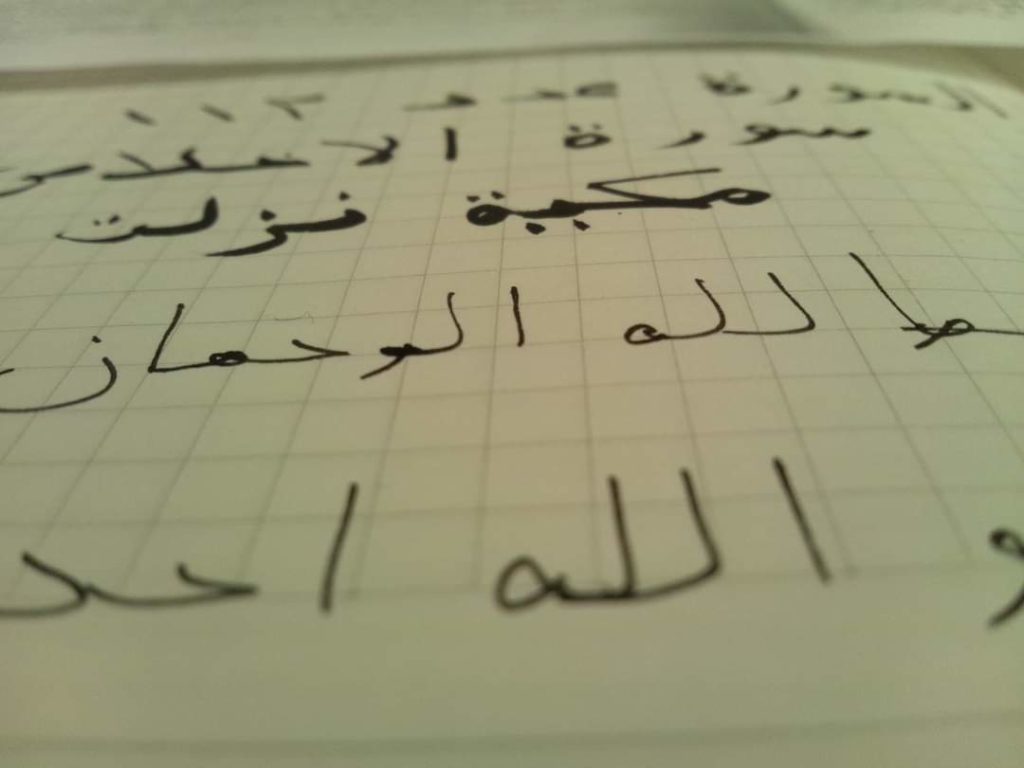 السورة عدد ١١٢
سورة الاخلاص
مكية نزلت
م الله الرحمان
و الله احد